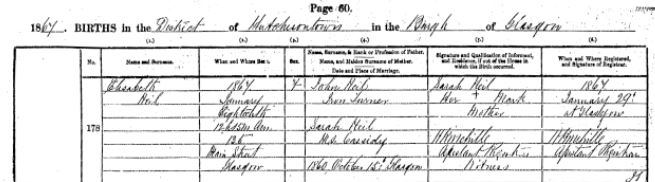 Page 60.
1867. BIRTHS in the District of Hutchesontown in the Burgh of Glasgow
(1.) (2.) (3.) (4.) (5.) (6.)
No. Name and Surname. When and Where Born. Sex. Name, Surname, & Rank or Profession of Father. Name, and Maiden Surname of Mother. Date and Place of Marriage. Signature and Qualification of Informant, and Residence, if out of the House in which the Birth occurred. When and Where Registered, and Signature of Registrar.
178
Elisabeth
Neil
1867
January
Eighteenth
12h 45m A.M.
125
Main Street
Glasgow
F
John Neil
Iron Turner
Sarah Neil
M.S. Cassidy
1860 October 15th Glasgow
Sarah Neil
Her + Mark
Mother
Assistant Registrar
Witness
1867
January 29th
at Glasgow
Assistant Registrar